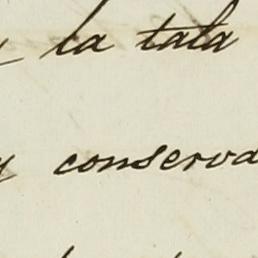 y la tala
y conserva